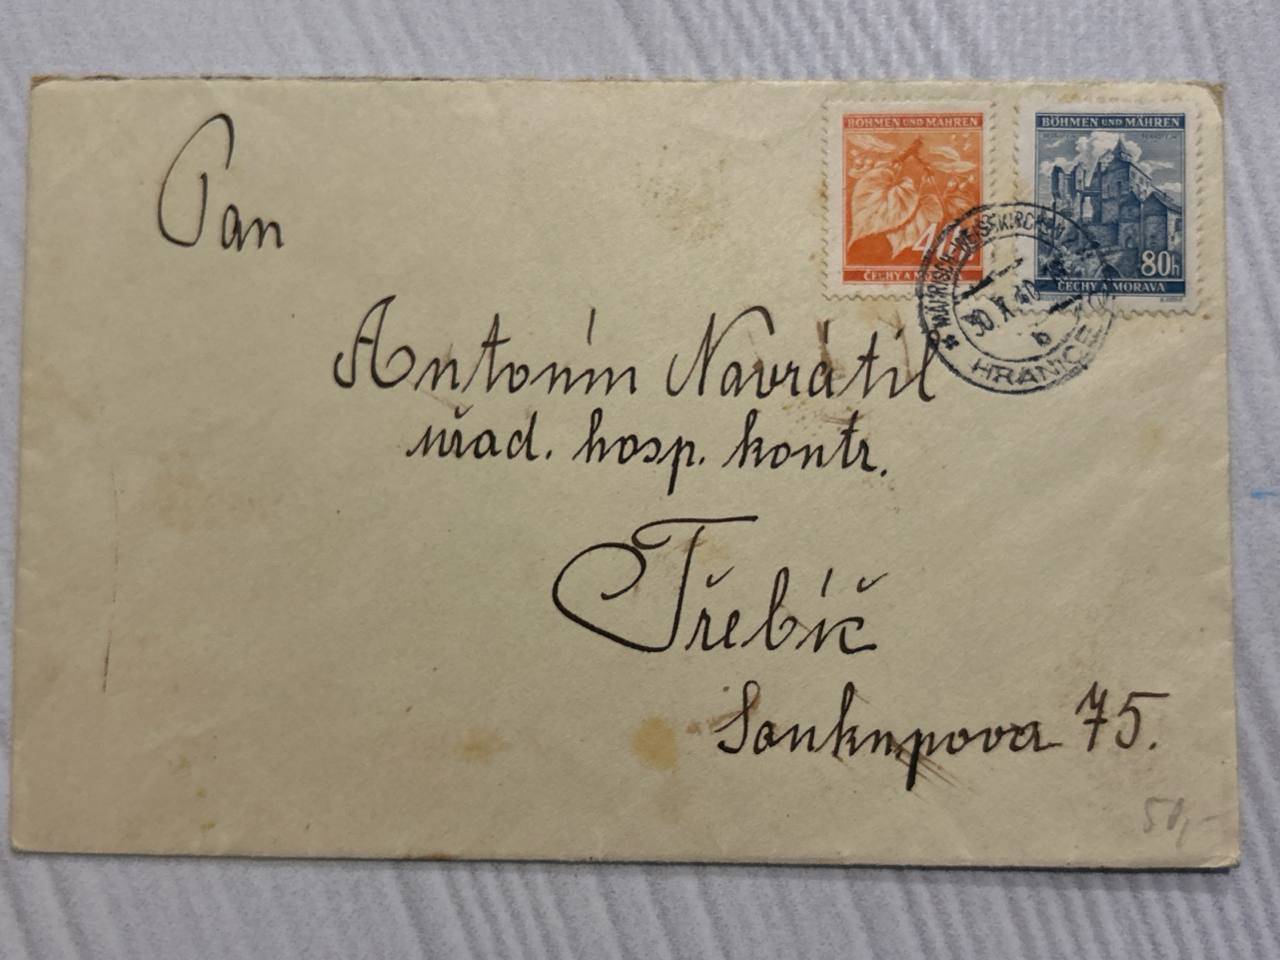 Pan
Antonín Navrátil
úřad. hosp. kontr.
Třebíč
Soukupova 75.
50,-
BÖHMEN UND MÄHREN
ČECHY A MORAVA
BÖHMEN UND MÄHREN
80h
ČECHY A MORAVA
30. X. 40
b
HRANICE